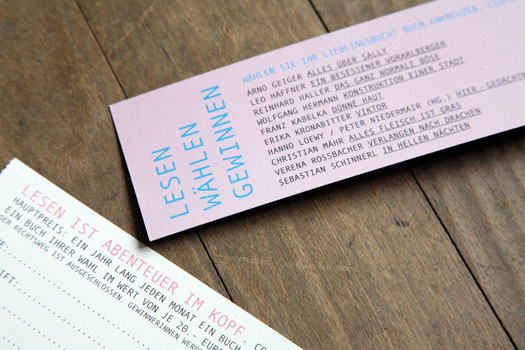 LESEN
WÄHLEN
GEWINNEN
WÄHLEN SIE IHR LIEBLINGSBUCH! BUCH ANKREUZEN,
ARNO GEIGER ALLES ÜBER SALLY
LEO HAFFNER EIN BESESSENER VORARLBERGER
REINHARD HALLER DAS GANZ NORMALE BÖSE
WOLFGANG HERMANN KONSTRUKTION EINER STADT
FRANZ KABELKA DÜNNE HAUT
ERIKA KRONABITTER VIKTOR
HANNO LOEWY / PETER NIEDERMAIR (HG.) HIER - GEDÄCHTN
CHRISTIAN MÄHR ALLES FLEISCH IST GRAS
VERENA ROSSBACHER VERLANGEN NACH DRACHEN
SEBASTIAN SCHINNERL IN HELLEN NÄCHTEN
LESEN IST ABENTEUER IM KOPF.
HAUPTPREIS: EIN JAHR LANG JEDEN MONAT EIN BUCH
EIN BUCH IHRER WAHL IM WERT VON JE 20.- EURO
DER RECHTSWEG IST AUSGESCHLOSSEN. GEWINNERINNEN WERDE